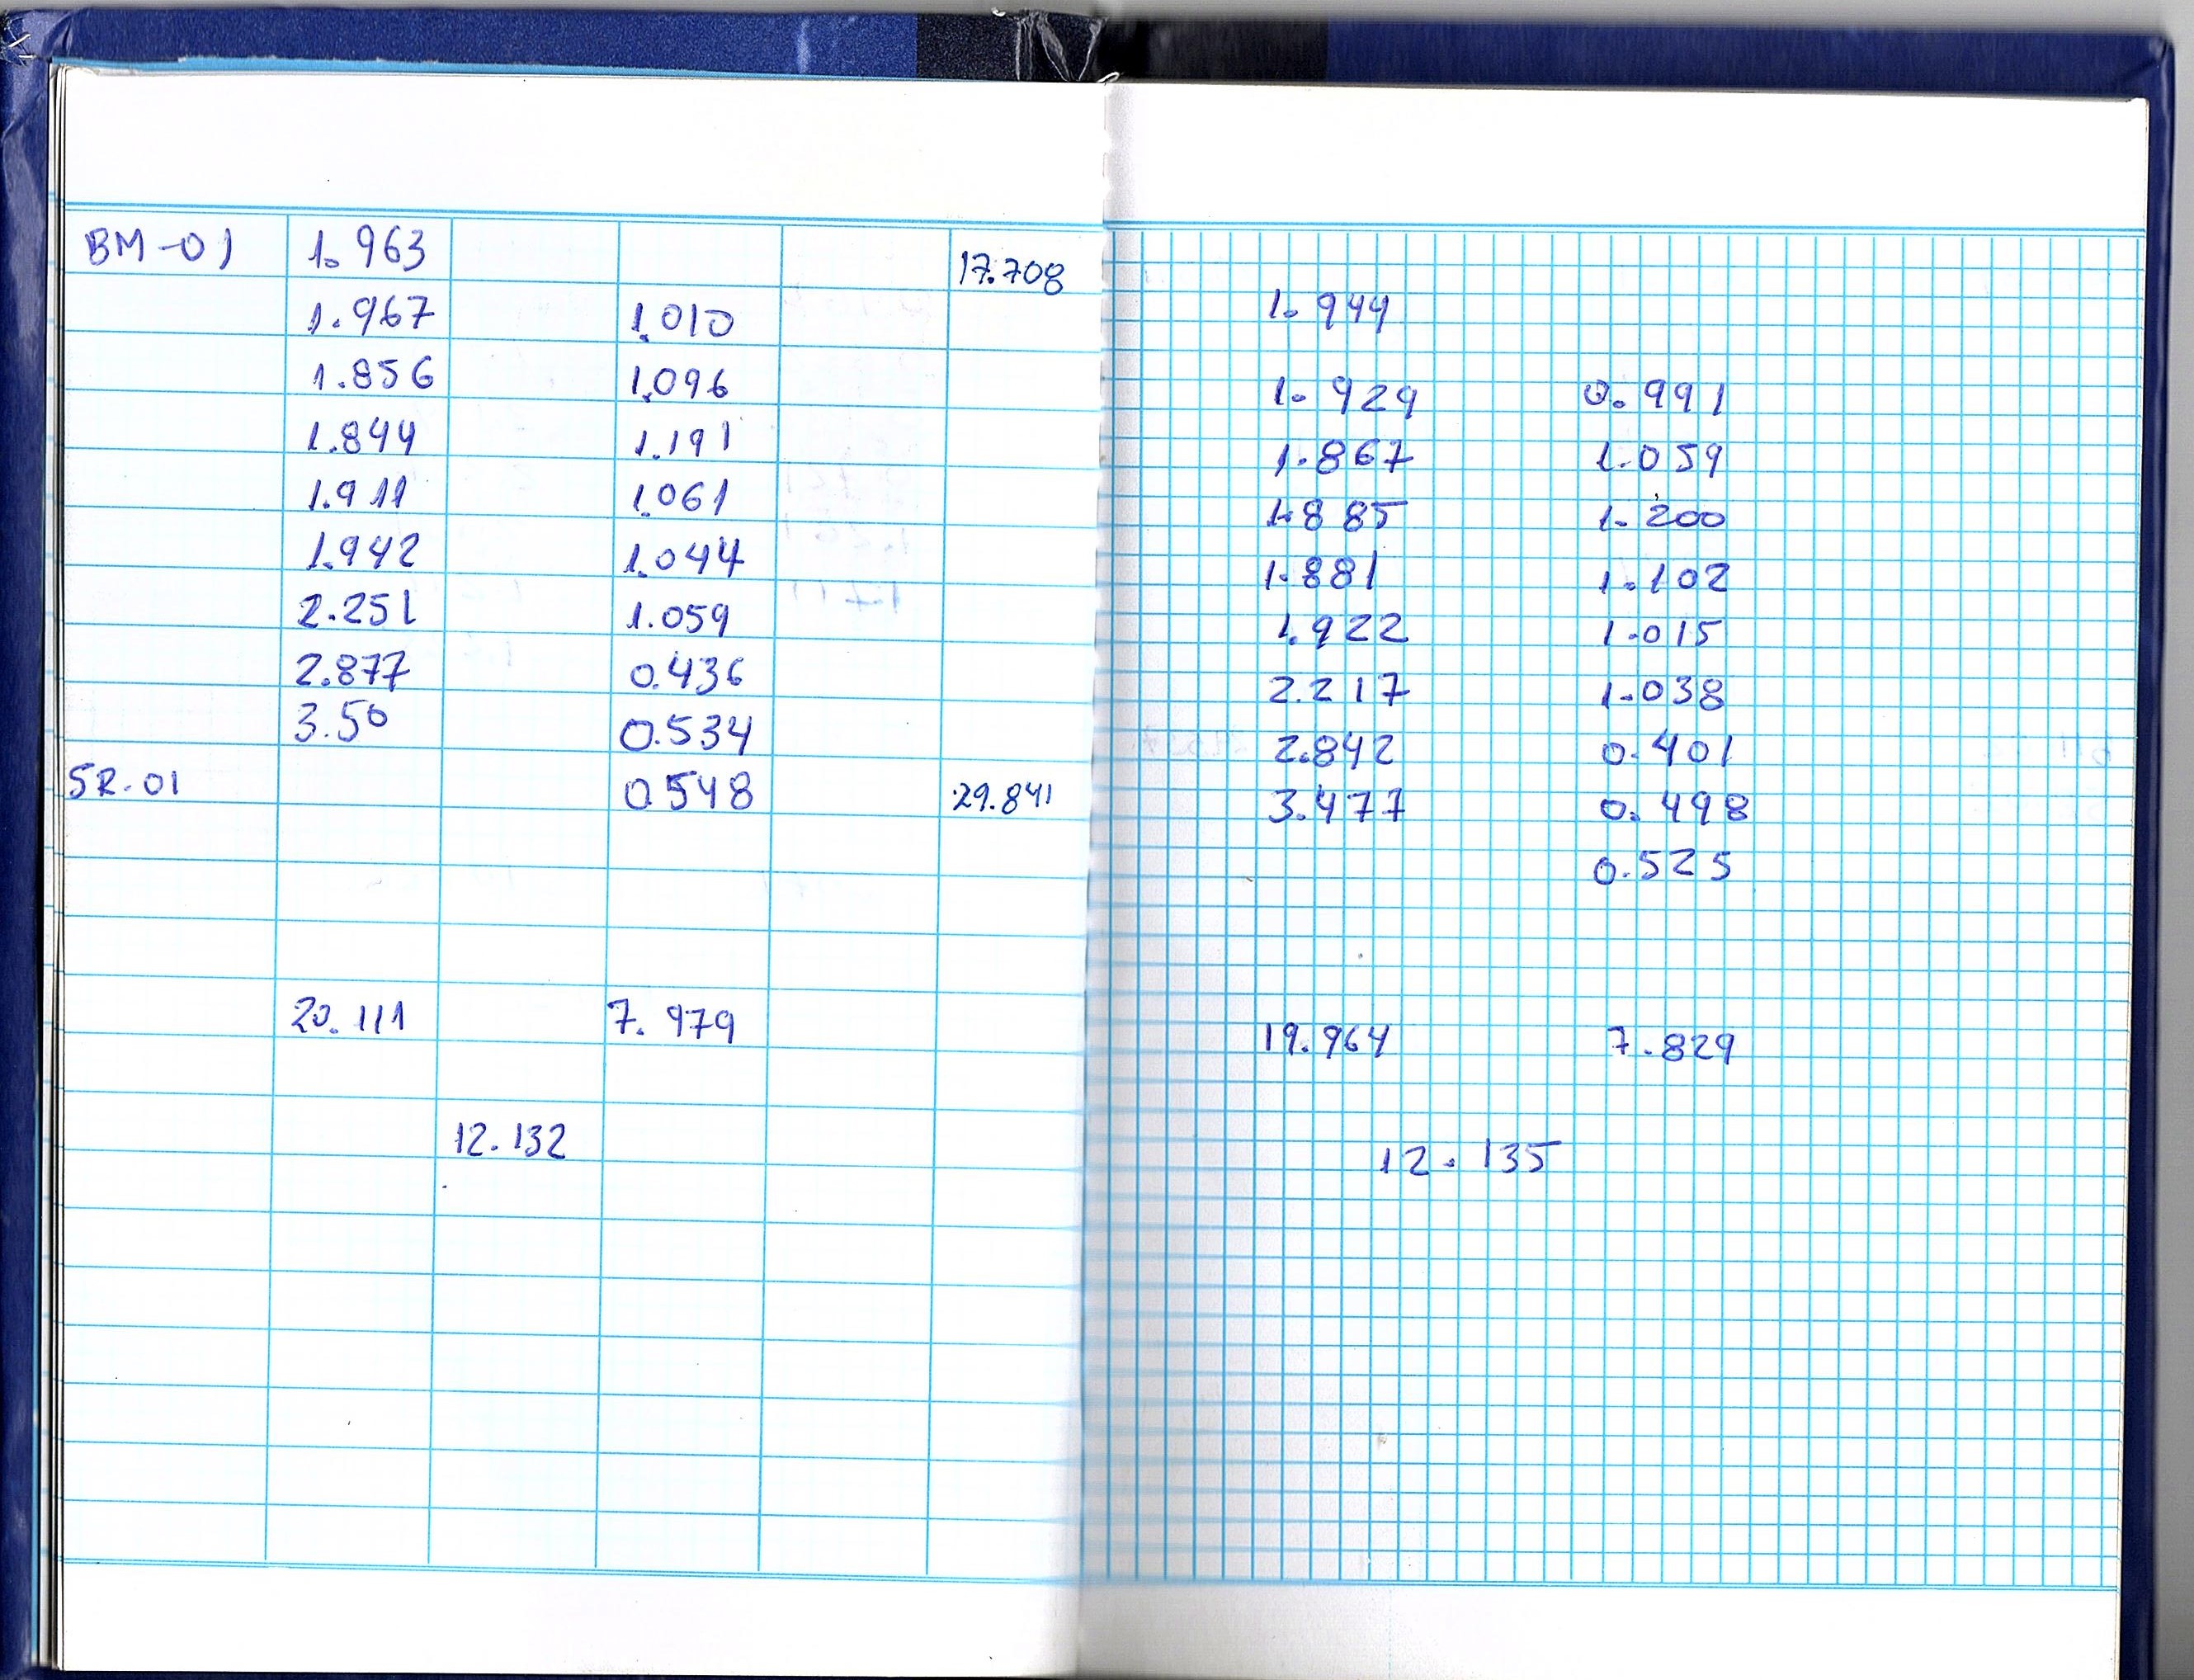 BM-01 1.963 17.708
1.967 1.010
1.856 1.096
1.844 1.191
1.911 1.061
1.942 1.044
2.251 1.059
2.877 0.436
3.50 0.534
SR-01 0.548 29.841
20.111 7.979
12.132
1.944
1.929 0.991
1.867 1.059
1.885 1.200
1.881 1.102
1.922 1.015
2.217 1.038
2.842 0.401
3.477 0.498
0.525
19.964 7.829
12.135